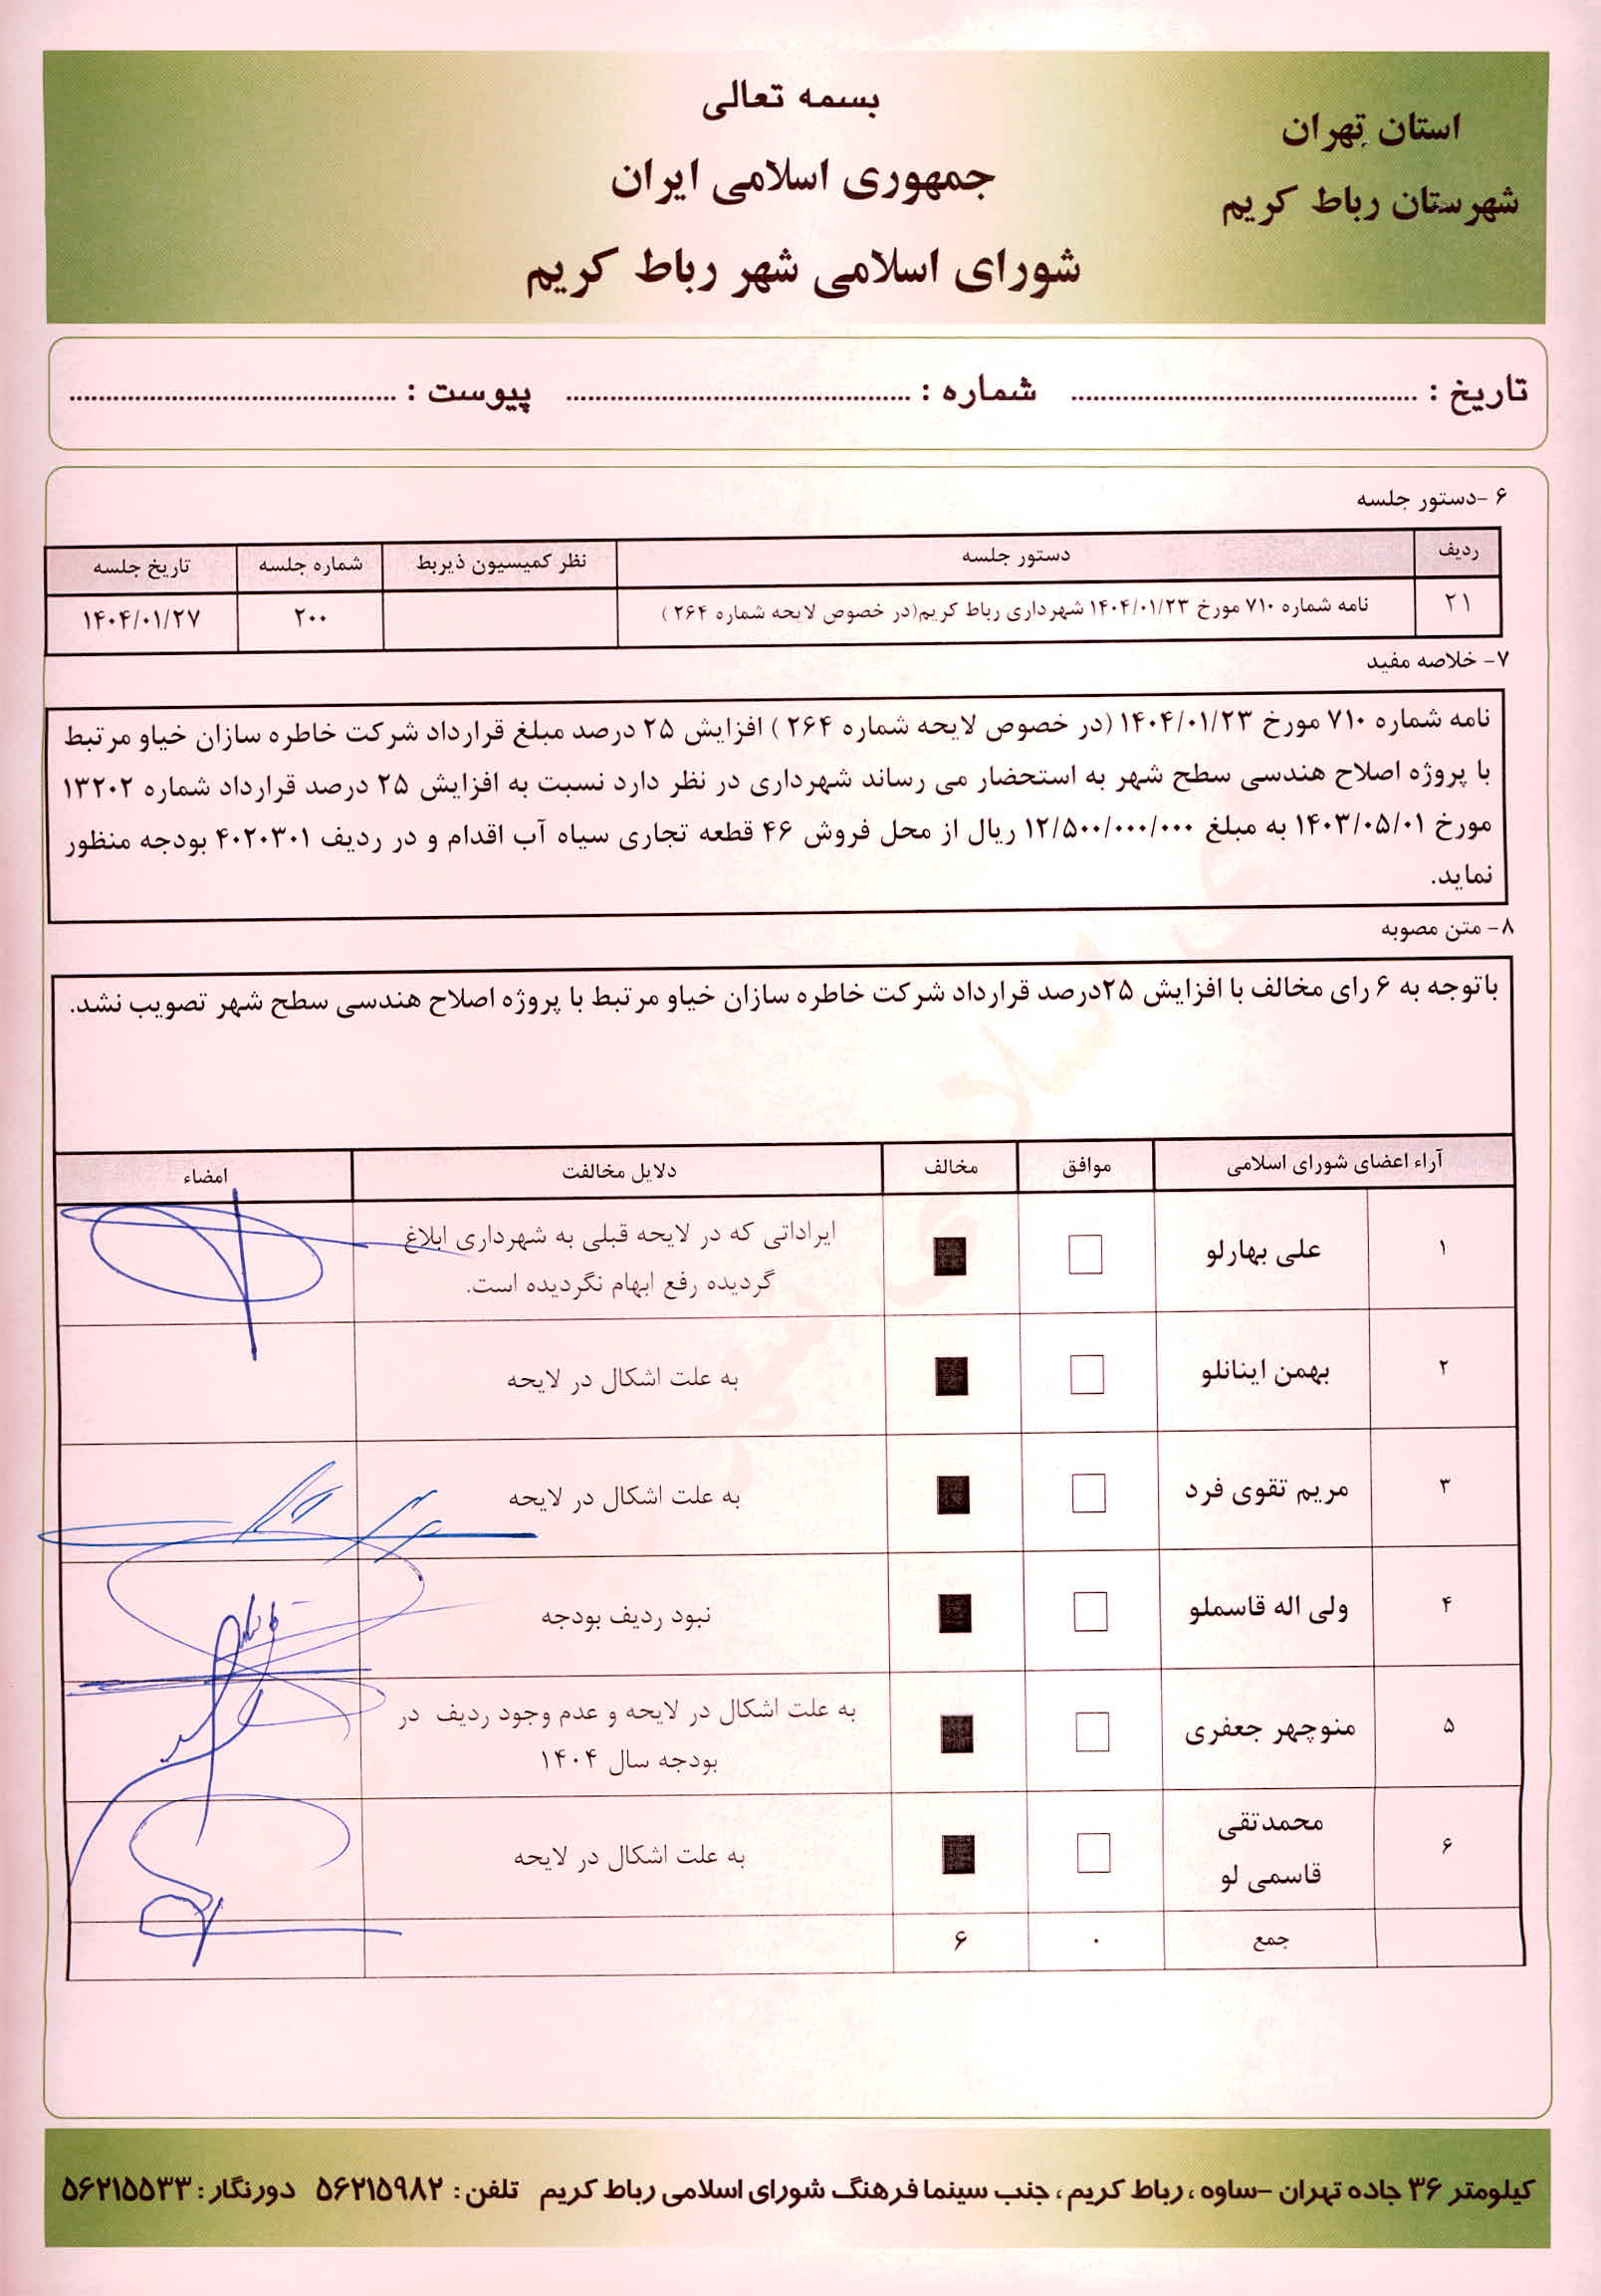 بسمه تعالی
استان تهران
جمهوری اسلامی ایران
شهرستان رباط کریم
شورای اسلامی شهر رباط کریم
تاریخ : ........................ شماره : ........................ پیوست : ........................
۶ -دستور جلسه
ردیف دستور جلسه نظر کمیسیون ذیربط شماره جلسه تاریخ جلسه
۲۱ نامه شماره ۷۱۰ مورخ ۱۴۰۴/۰۱/۲۳ شهرداری رباط کریم(در خصوص لایحه شماره ۲۶۴ ) ۲۰۰ ۱۴۰۴/۰۱/۲۷
۷- خلاصه مفید
نامه شماره ۷۱۰ مورخ ۱۴۰۴/۰۱/۲۳ (در خصوص لایحه شماره ۲۶۴ ) افزایش ۲۵ درصد مبلغ قرارداد شرکت خاطره سازان خیاو مرتبط
با پروژه اصلاح هندسی سطح شهر به استحضار می رساند شهرداری در نظر دارد نسبت به افزایش ۲۵ درصد قرارداد شماره ۱۳۲۰۲
مورخ ۱۴۰۳/۰۵/۰۱ به مبلغ ۱۲/۵۰۰/۰۰۰/۰۰۰ ریال از محل فروش ۴۶ قطعه تجاری سیاه آب اقدام و در ردیف ۴۰۲۰۳۰۱ بودجه منظور
نماید.
۸- متن مصوبه
باتوجه به ۶ رای مخالف با افزایش ۲۵درصد قرارداد شرکت خاطره سازان خیاو مرتبط با پروژه اصلاح هندسی سطح شهر تصویب نشد.
آراء اعضای شورای اسلامی موافق مخالف دلایل مخالفت امضاء
۱ علی بهارلو ایراداتی که در لایحه قبلی به شهرداری ابلاغ
گردیده رفع ابهام نگردیده است.
۲ بهمن اینانلو به علت اشکال در لایحه
۳ مریم تقوی فرد به علت اشکال در لایحه
۴ ولی اله قاسملو نبود ردیف بودجه
۵ منوچهر جعفری به علت اشکال در لایحه و عدم وجود ردیف در
بودجه سال ۱۴۰۴
۶ محمدتقی
قاسمی لو به علت اشکال در لایحه
جمع ۰ ۶
کیلومتر ۳۶ جاده تهران -ساوه ، رباط کریم ، جنب سینما فرهنگ شورای اسلامی رباط کریم تلفن : ۵۶۲۱۵۹۸۲ دورنگار : ۵۶۲۱۵۵۳۳